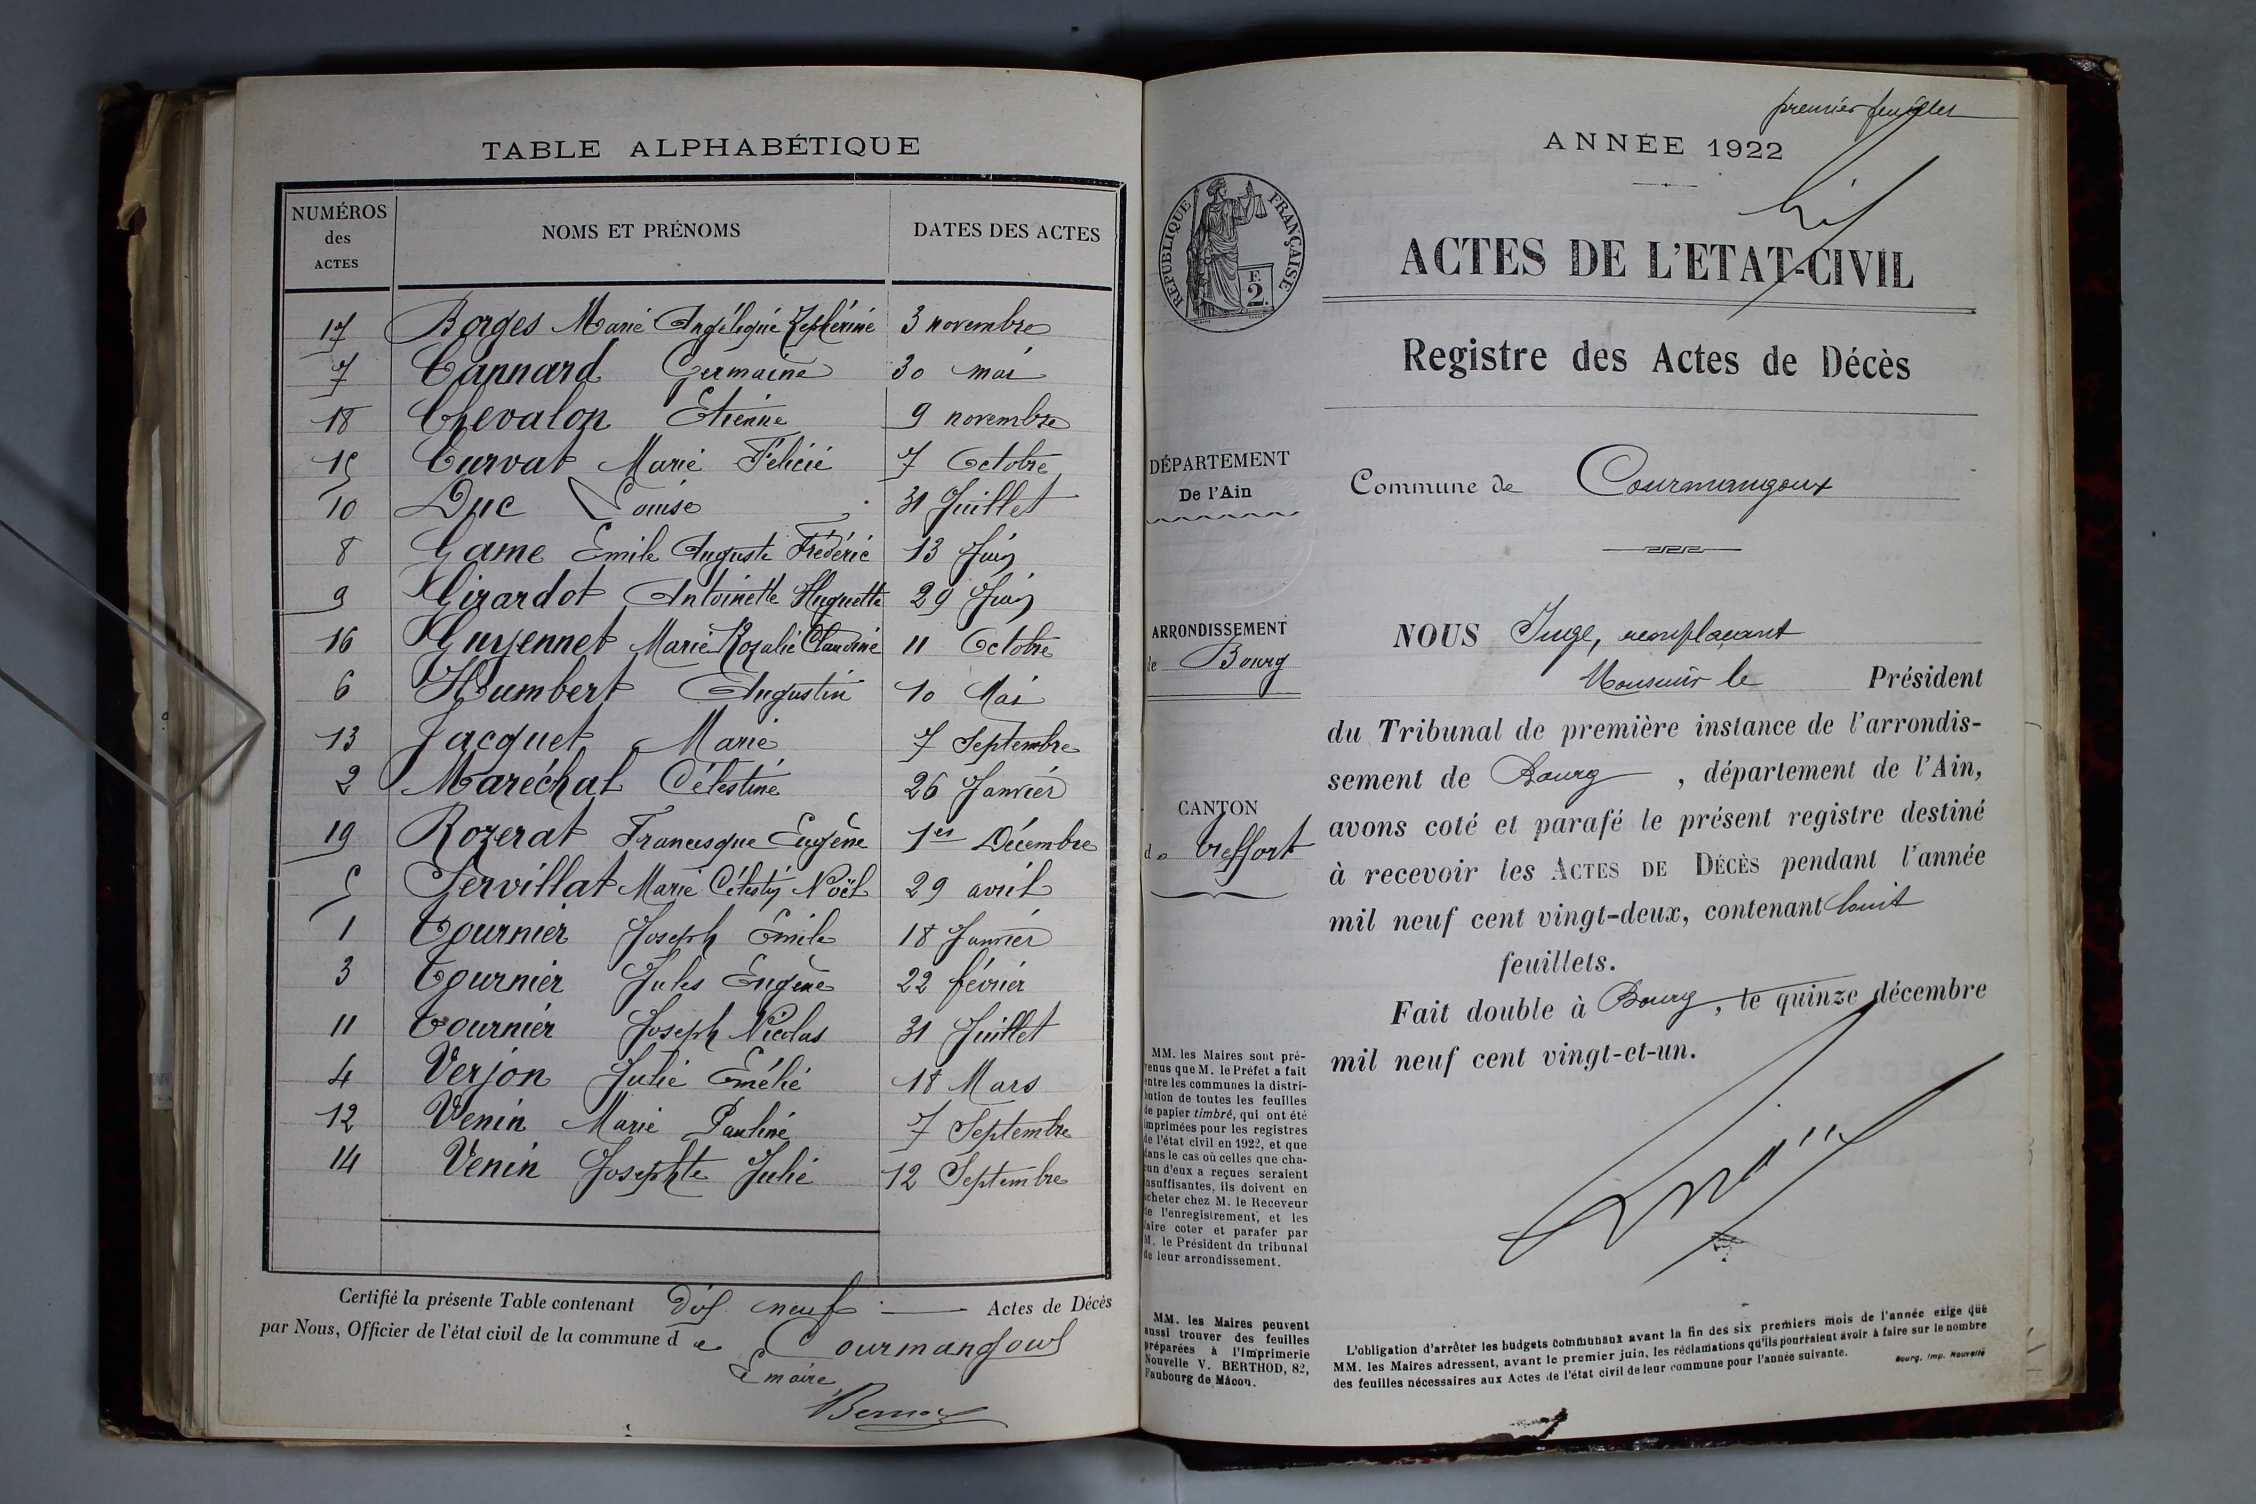 TABLE ALPHABÉTIQUE
NUMÉROS des ACTES NOMS ET PRÉNOMS DATES DES ACTES
17 Borges Marie Angélique Zéphérine 3 novembre
7 Cannard Germaine 30 mai
18 Chevalon Etienne 9 novembre
15 Curvat Marie Félicie 7 Octobre
10 Duc Louise 31 Juillet
8 Game Emile Auguste Frédéric 13 Juin
9 Girardot Antoinette Huguette 29 Juin
16 Guyennet Marie Rozalie Claudine 11 Octobre
6 Humbert Augustin 10 Mai
13 Jacquet Marie 7 Septembre
2 Maréchal Célestine 26 Janvier
19 Rozerat Francisque Eugène 1er Décembre
5 Servillat Marie Célestin Noël 29 avril
1 Tournier Joseph Emile 18 Janvier
3 Tournier Jules Eugène 22 février
11 Tournier Joseph Nicolas 31 Juillet
4 Verjon Julie Emélie 18 Mars
12 Venin Marie Pauline 7 Septembre
14 Venin Josephte Julie 12 Septembre
Certifié la présente Table contenant dix neuf Actes de Décès
par Nous, Officier de l'état civil de la commune de Courmangoux
Le maire
premier feuillet
ANNÉE 1922
RÉPUBLIQUE FRANÇAISE
F. 2.
ACTES DE L'ETAT-CIVIL
Registre des Actes de Décès
DÉPARTEMENT
De l'Ain
Commune de Courmangoux
ARRONDISSEMENT
de Bourg
CANTON
de Treffort
NOUS Juge, remplaçant
Monsieur le Président
du Tribunal de première instance de l'arrondis-
sement de Bourg, département de l'Ain,
avons coté et parafé le présent registre destiné
à recevoir les ACTES DE DÉCÈS pendant l'année
mil neuf cent vingt-deux, contenant huit
feuillets.
Fait double à Bourg, le quinze décembre
mil neuf cent vingt-et-un.
MM. les Maires sont pré-
venus que M. le Préfet a fait
entre les communes la distri-
bution de toutes les feuilles
de papier timbré, qui ont été
imprimées pour les registres
de l'état civil en 1922, et que
dans le cas où celles que cha-
cun d'eux a reçues seraient
insuffisantes, ils doivent en
acheter chez M. le Receveur
de l'enregistrement, et les
faire coter et parafer par
M. le Président du tribunal
de leur arrondissement.
MM. les Maires peuvent
aussi trouver des feuilles
préparées à l'Imprimerie
Nouvelle V. BERTHOD, 82,
Faubourg de Mâcon.
L'obligation d'arrêter les budgets communaux avant la fin des six premiers mois de l'année exige que
MM. les Maires adressent, avant le premier juin, les réclamations qu'ils pourraient avoir à faire sur le nombre
des feuilles nécessaires aux Actes de l'état civil de leur commune pour l'année suivante.
Bourg, Imp. Nouvelle